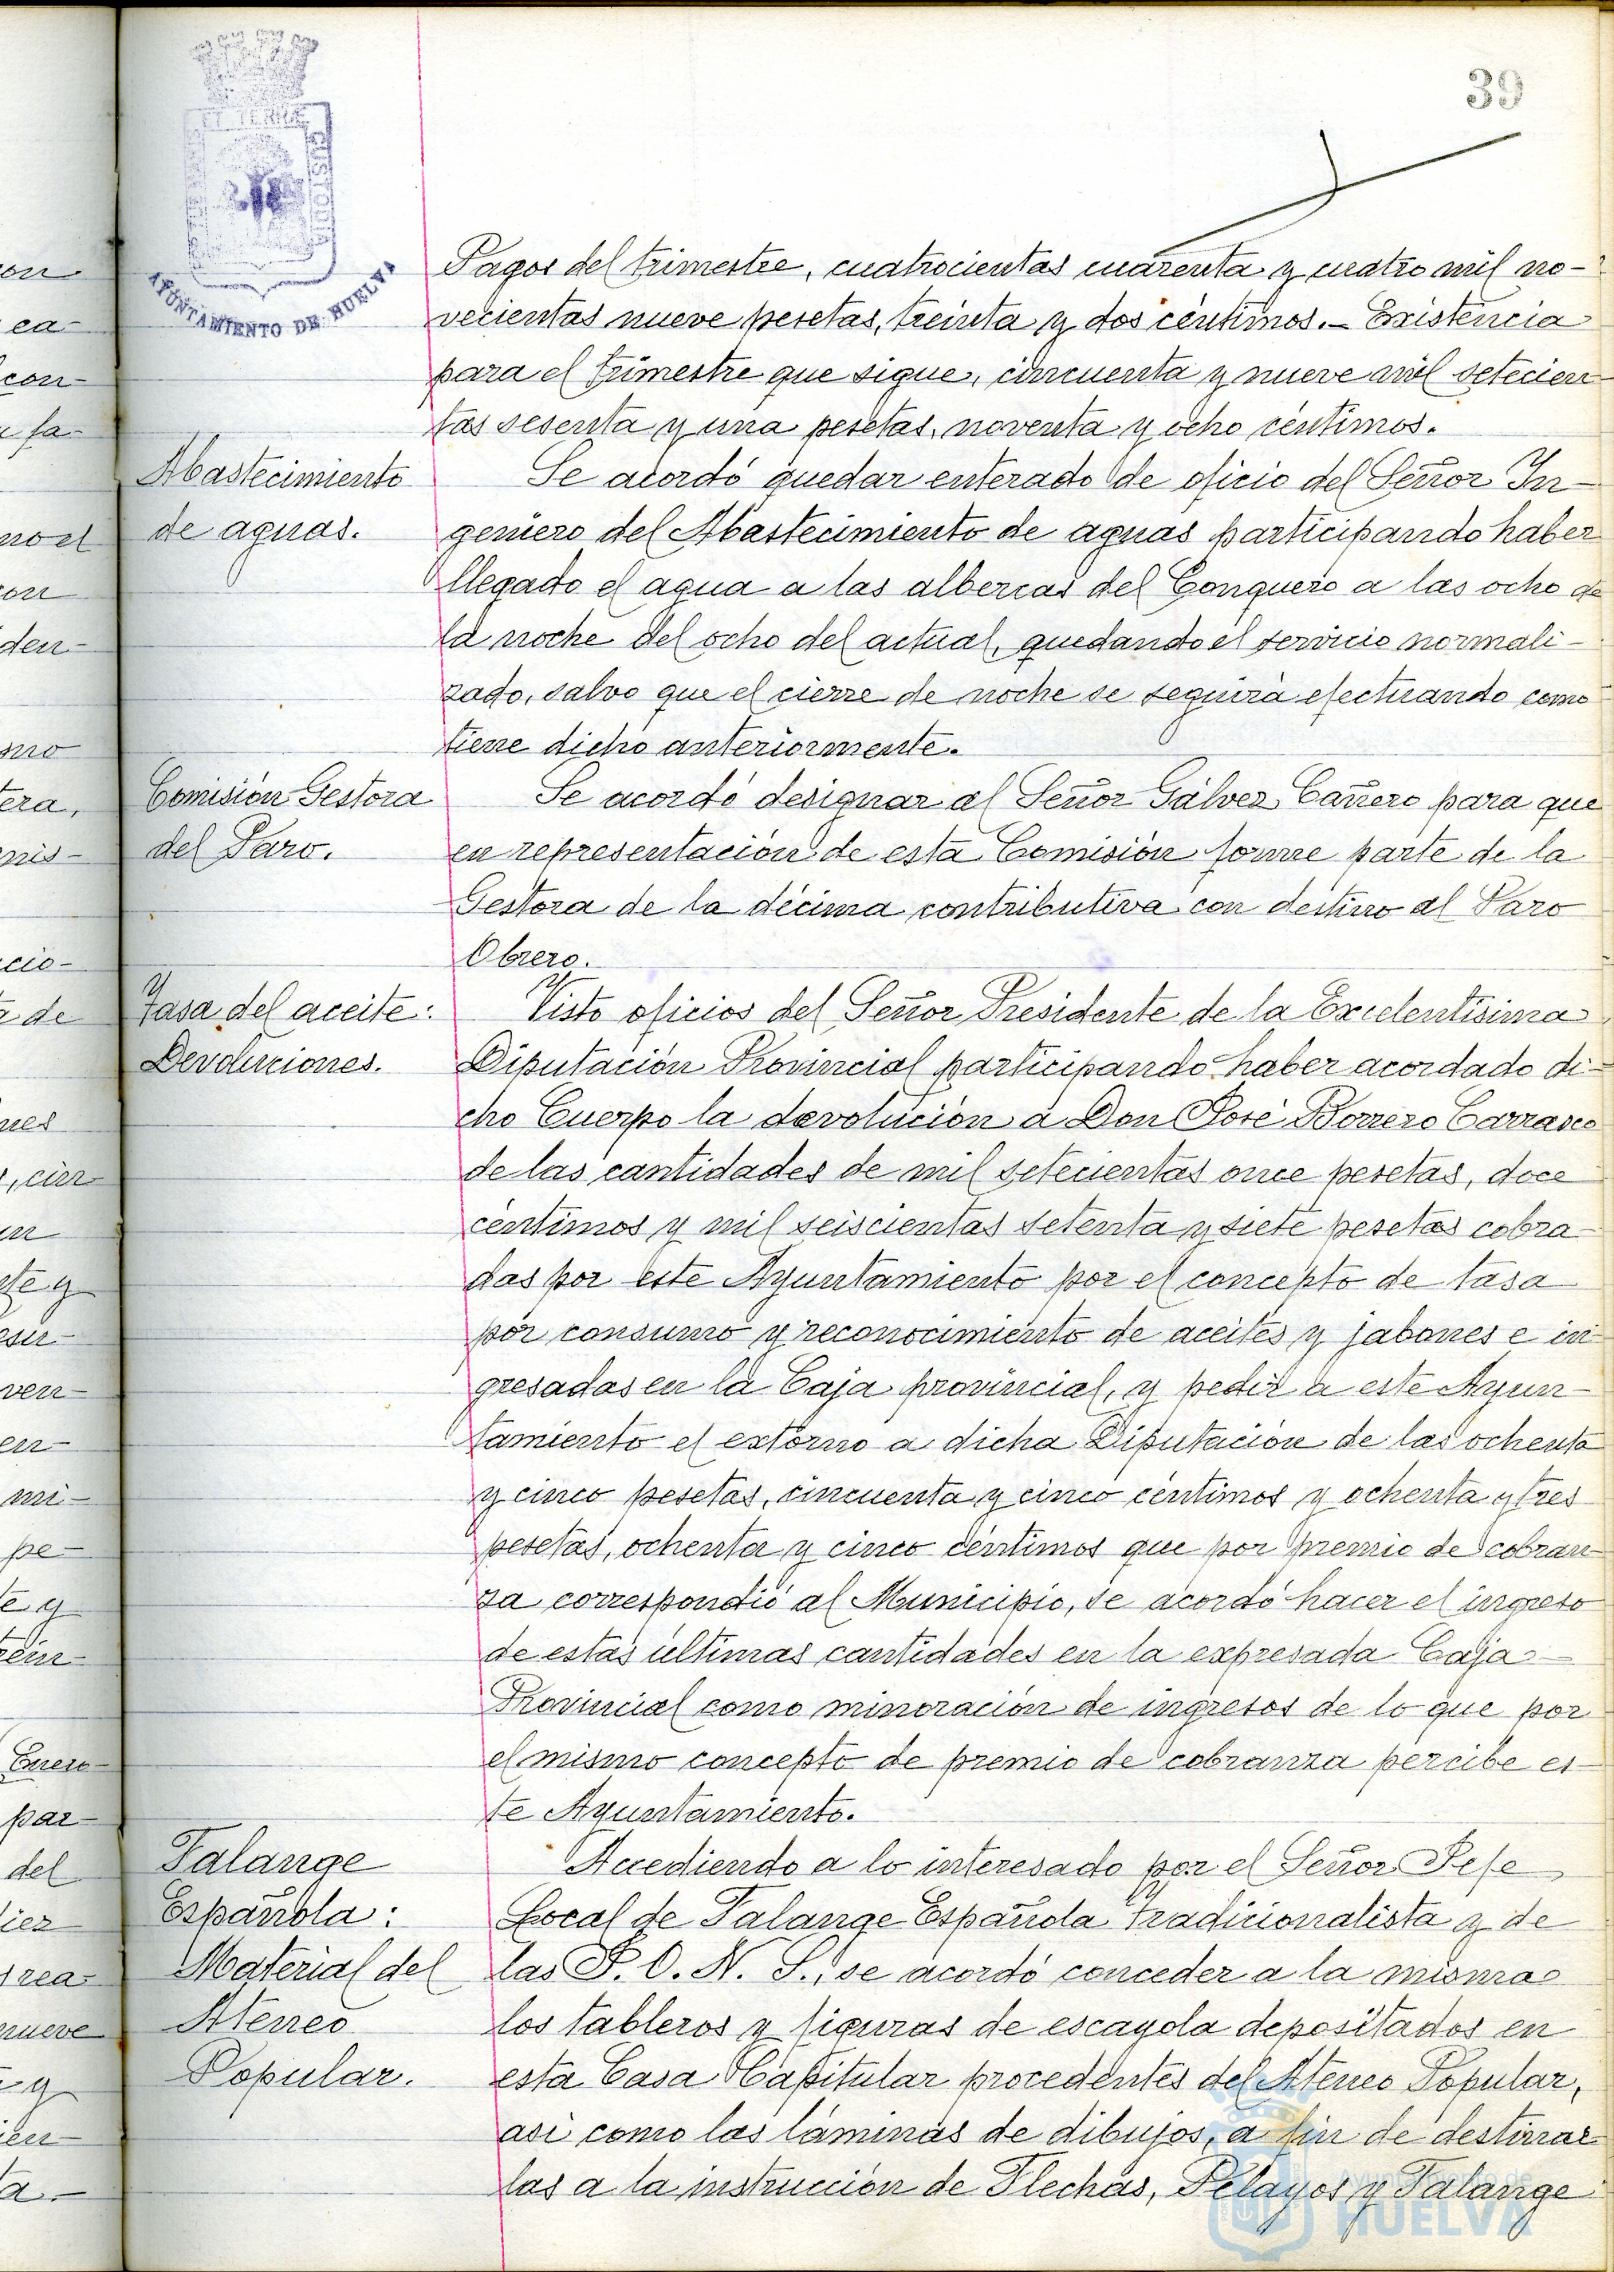 39
AYUNTAMIENTO DE HUELVA
Pagos del trimestre, cuatrocientas cuarenta y cuatro mil no-
vecientas nueve pesetas, treinta y dos céntimos.- Existencia
para el trimestre que sigue, cincuenta y nueve mil setecien
tas sesenta y una pesetas, noventa y ocho céntimos.
Abastecimiento
de aguas.
Se acordó quedar enterado de oficio del Señor In-
geniero del Abastecimiento de aguas participando haber
llegado el agua a las albercas del Conquero a las ocho de
la noche del ocho del actual, quedando el servicio normali-
zado, salvo que el cierre de noche se seguirá efectuando como
tiene dicho anteriormente.
Comisión Gestora
del Paro.
Se acordó designar al Señor Gálvez Cañero para que
en representación de esta Comisión forme parte de la
Gestora de la décima contributiva con destino al Paro
Obrero.
Tasa del aceite:
Devoluciones.
Visto oficios del Señor Presidente de la Excelentísima
Diputación Provincial participando haber acordado di-
cho Cuerpo la devolución a Don José Borrero Carrasco
de las cantidades de mil setecientas once pesetas, doce
céntimos y mil seiscientas setenta y siete pesetas cobra-
das por este Ayuntamiento por el concepto de tasa
por consumo y reconocimiento de aceites y jabones e in-
gresadas en la Caja provincial, y pedir a este Ayun-
tamiento el extorno a dicha Diputación de las ochenta
y cinco pesetas, cincuenta y cinco céntimos y ochenta y tres
pesetas, ochenta y cinco céntimos que por premio de cobran-
za correspondió al Municipio, se acordó hacer el ingreso
de estas últimas cantidades en la expresada Caja
Provincial como minoración de ingresos de lo que por
el mismo concepto de premio de cobranza percibe es-
te Ayuntamiento.
Falange
Española:
Material del
Ateneo
Popular.
Accediendo a lo interesado por el Señor Jefe
Local de Falange Española Tradicionalista y de
las J. O. N. S., se acordó conceder a la misma
los tableros y figuras de escayola depositados en
esta Casa Capitular procedentes del Ateneo Popular,
asi como las láminas de dibujos, a fin de destinar-
las a la instrucción de Flechas, Pelayos y Falange
Ayuntamiento de
HUELVA